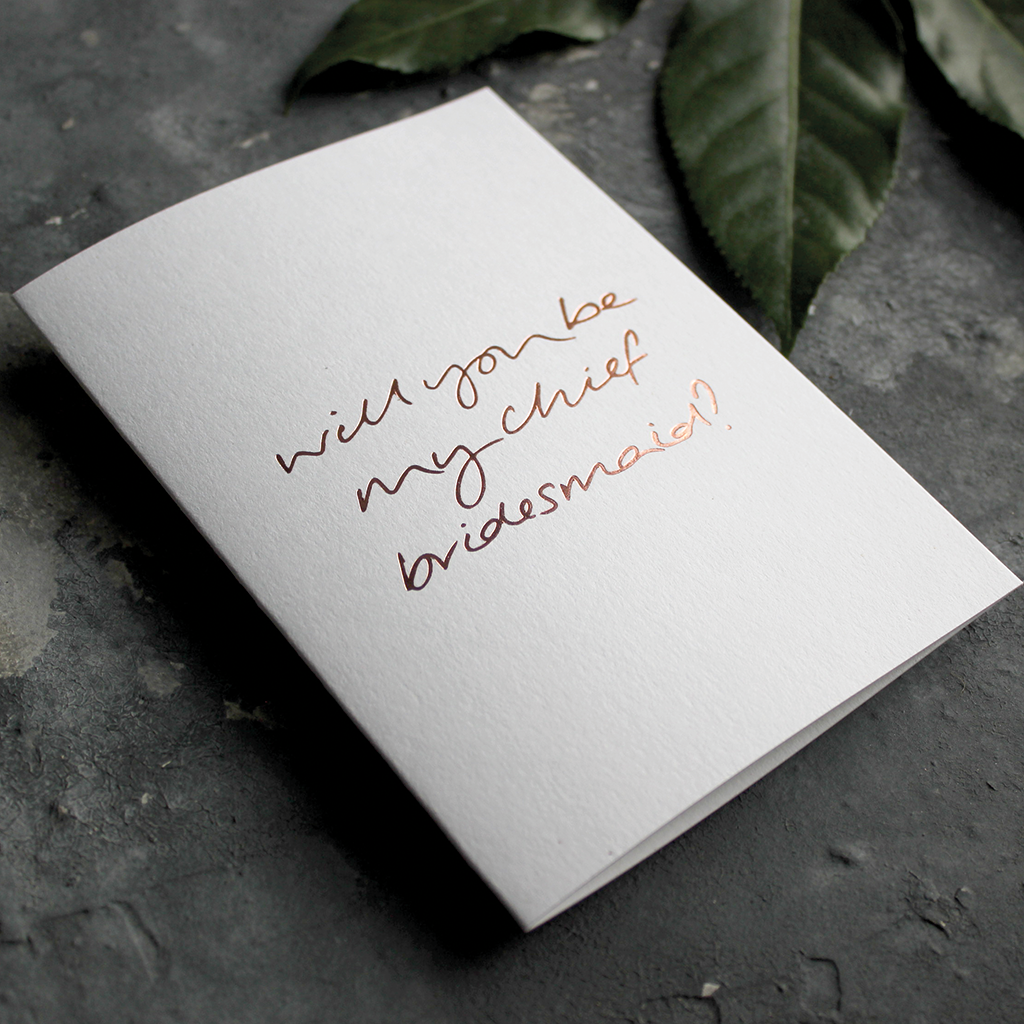 will you be
my chief
bridesmaid?